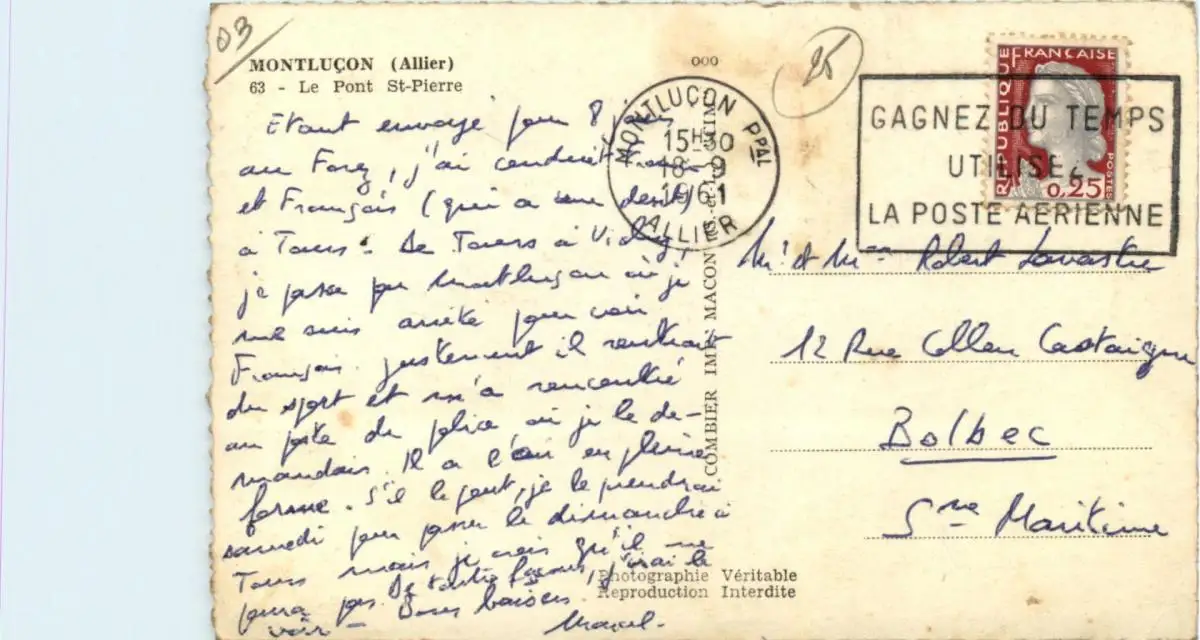 03
MONTLUÇON (Allier)
63 - Le Pont St-Pierre
ooo
25
Etant envoyé pour 8 jours
au Forez, j'ai conduit
et François (qui a une dent)
à Tours. De Tours à Vichy,
je passe par Montluçon où je
me suis arrêté pour voir
François. Justement il rentrait
du sport et m'a rencontré
au poste de police où je le de-
mandais. Il a l'air en pleine
forme. S'il le peut, je le prendrai
samedi pour passer le dimanche à
Tours mais je crois qu'il ne
pourra pas. De toutes façons, j'irai le
voir - Bons baisers.
Marcel.
MONTLUÇON PPAL
15H30
18-9
1961
ALLIER
COMBIER IMP. MACON
RÉPUBLIQUE FRANÇAISE
POSTES
0,25
GAGNEZ DU TEMPS
UTILISEZ
LA POSTE AÉRIENNE
Mr et Mme Robert
12 Rue Collen Castaigne
Bolbec
Sne Maritime
Photographie Véritable
Reproduction Interdite